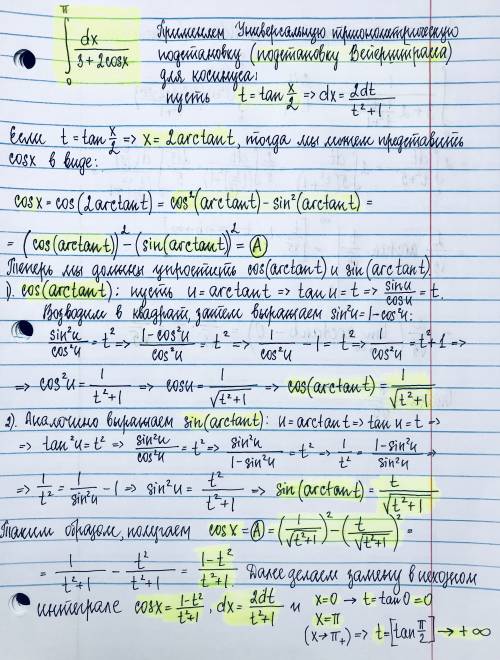 ∫₀^π dx/(3+2cosx)
Применяем Универсальную тригонометрическую
подстановку (подстановку Вейерштрасса)
для косинуса:
пусть t = tan x/2 => dx = 2dt/(t²+1)
Если t = tan x/2 => x = 2arctant, тогда мы можем представить
cosx в виде:
cosx = cos(2arctant) = cos²(arctant) - sin²(arctant) =
= (cos(arctant))² - (sin(arctant))² = Ⓐ
Теперь мы должны упростить cos(arctant) и sin(arctant).
1). cos(arctant): пусть u = arctant => tanu = t => sinu/cosu = t.
Возводим в квадрат, затем выражаем sin²u = 1-cos²u:
sin²u/cos²u = t² => (1-cos²u)/cos²u = t² => 1/cos²u - 1 = t² => 1/cos²u = t²+1 =>
=> cos²u = 1/(t²+1) => cosu = 1/√(t²+1) => cos(arctant) = 1/√(t²+1)
2). Аналогично выражаем sin(arctant): u = arctant => tanu = t =>
=> tan²u = t² => sin²u/cos²u = t² => sin²u/(1-sin²u) = t² => 1/t² = (1-sin²u)/sin²u =>
=> 1/t² = 1/sin²u - 1 => sin²u = t²/(t²+1) => sin(arctant) = t/√(t²+1)
Таким образом, получаем cosx = Ⓐ = (1/√(t²+1))² - (t/√(t²+1))² =
= 1/(t²+1) - t²/(t²+1) = (1-t²)/(t²+1). Далее делаем замену в исходном
интеграле cosx = (1-t²)/(t²+1), dx = 2dt/(t²+1) и x=0 → t = tan0 = 0
x=π
(x→π₊) => t = [tan π/2] → +∞